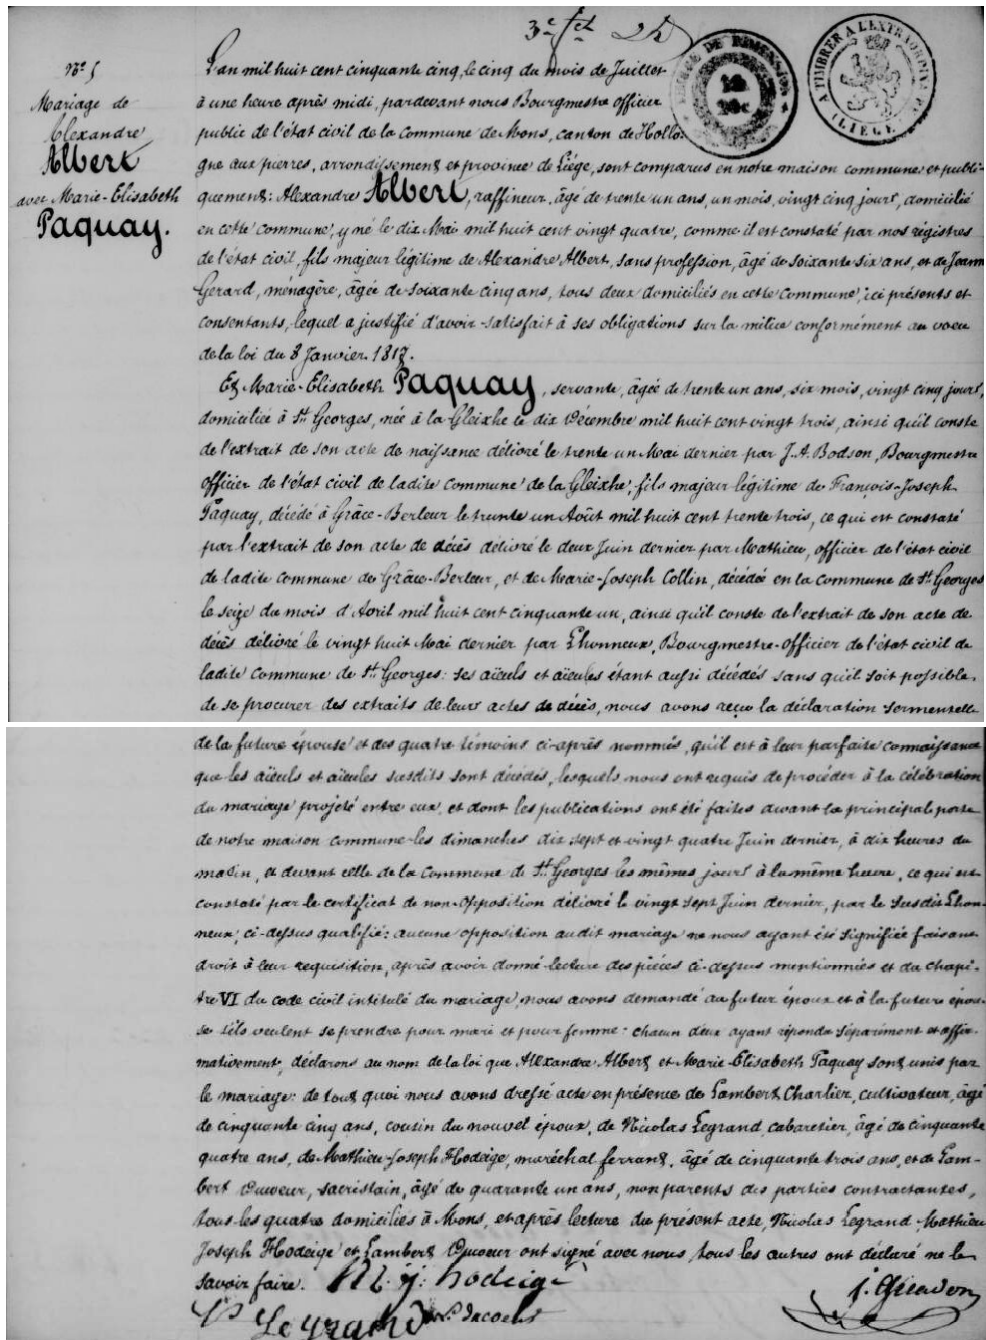 3e fet 25
TIMBRE DE DIMENSION
A TIMBRER A L'EXTRAORDINAIRE
LIÉGE
N° 5
Mariage de
Alexandre
Albert
avec Marie-Elisabeth
Paquay.
L'an mil huit cent cinquante cinq, le cinq du mois de Juillet
à une heure après midi, pardevant nous Bourgmestre officier
public de l'état civil de la commune de Mons, canton de Hollo-
gne aux pierres, arrondissement et province de Liége, sont comparus en notre maison commune et publi-
quement: Alexandre Albert, raffineur, âgé de trente un ans, un mois, vingt cinq jours, domicilié
en cette commune, y né le dix Mai mil huit cent vingt quatre, comme il est constaté par nos régistres
de l'état civil, fils majeur légitime de Alexandre Albert, sans profession, âgé de soixante six ans, et de Jeanne
Gerard, ménagère, âgée de soixante cinq ans, tous deux domiciliés en cette commune, ici présents et
consentants, lequel a justifié d'avoir satisfait à ses obligations sur la milice conformément au voeu
de la loi du 8 Janvier 1817.
Et Marie-Elisabeth Paquay, servante, âgée de trente un ans, six mois, vingt cinq jours,
domiciliée à St Georges, née à la Gleixhe le dix Décembre mil huit cent vingt trois, ainsi qu'il conste
de l'extrait de son acte de naissance délivré le trente un Mai dernier par J. A. Bodson, Bourgmestre
officier de l'état civil de ladite commune de la Gleixhe, fils majeur légitime de François-Joseph
Paquay, décédé à Grâce-Berleur le trente un Août mil huit cent trente trois, ce qui est constaté
par l'extrait de son acte de décès délivré le deux Juin dernier par Mathieu, officier de l'état civil
de ladite commune de Grâce-Berleur, et de Marie-Joseph Collin, décédée en la commune de St Georges
le seize du mois d'Avril mil huit cent cinquante un, ainsi qu'il conste de l'extrait de son acte de
décès délivré le vingt huit Mai dernier par Lhonneux, Bourgmestre-officier de l'état civil de
ladite commune de St Georges: ses aïeuls et aïeules étant aussi décédés sans qu'il soit possible
de se procurer des extraits de leurs actes de décès, nous avons reçu la déclaration sermentelle
de la future épouse et des quatre témoins ci-après nommés, qu'il est à leur parfaite connaissance
que les aïeuls et aïeules susdits sont décédés, lesquels nous ont requis de procéder à la célébration
du mariage projeté entre eux, et dont les publications ont été faites devant la principale porte
de notre maison commune les dimanches dix sept et vingt quatre Juin dernier, à dix heures du
matin, et devant celle de la commune de St Georges les mêmes jours à la même heure, ce qui est
constaté par le certificat de non-opposition délivré le vingt sept Juin dernier, par le susdit Lhon-
neux, ci-dessus qualifié: aucune opposition audit mariage ne nous ayant été signifiée faisant
droit à leur requisition, après avoir donné lecture des pièces ci-dessus mentionnées et du chapi-
tre VI du code civil intitulé du mariage, nous avons demandé au futur époux et à la future épou-
se s'ils veulent se prendre pour mari et pour femme: chacun deux ayant répondu séparément et affir-
mativement, déclarons au nom de la loi que Alexandre Albert et Marie-Elisabeth Paquay sont unis par
le mariage: de tout quoi nous avons dressé acte en présence de Lambert Charlier, cultivateur, âgé
de cinquante cinq ans, cousin du nouvel époux, de Nicolas Legrand, cabaretier, âgé de cinquante
quatre ans, de Mathieu-Joseph Hodeige, maréchal ferrant, âgé de cinquante trois ans, et de Lam-
bert Duvoeur, sacristain, âgé de quarante un ans, non parents des parties contractantes,
tous les quatre domiciliés à Mons, et après lecture du présent acte, Nicolas Legrand Mathieu
Joseph Hodeige et Lambert Duvoeur ont signé avec nous, tous les autres ont déclaré ne le
savoir faire. M. j. hodeige
Le grand